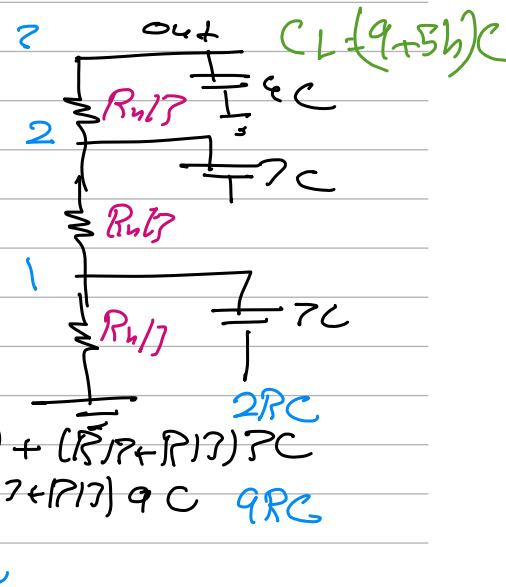 3
out
CL=(9+5h)C
Rn/3
9C
2
3C
Rn/3
1
Rn/3
3C
2RC
+ (R/3+R/3)3C
3+R/3) 9C 9RC